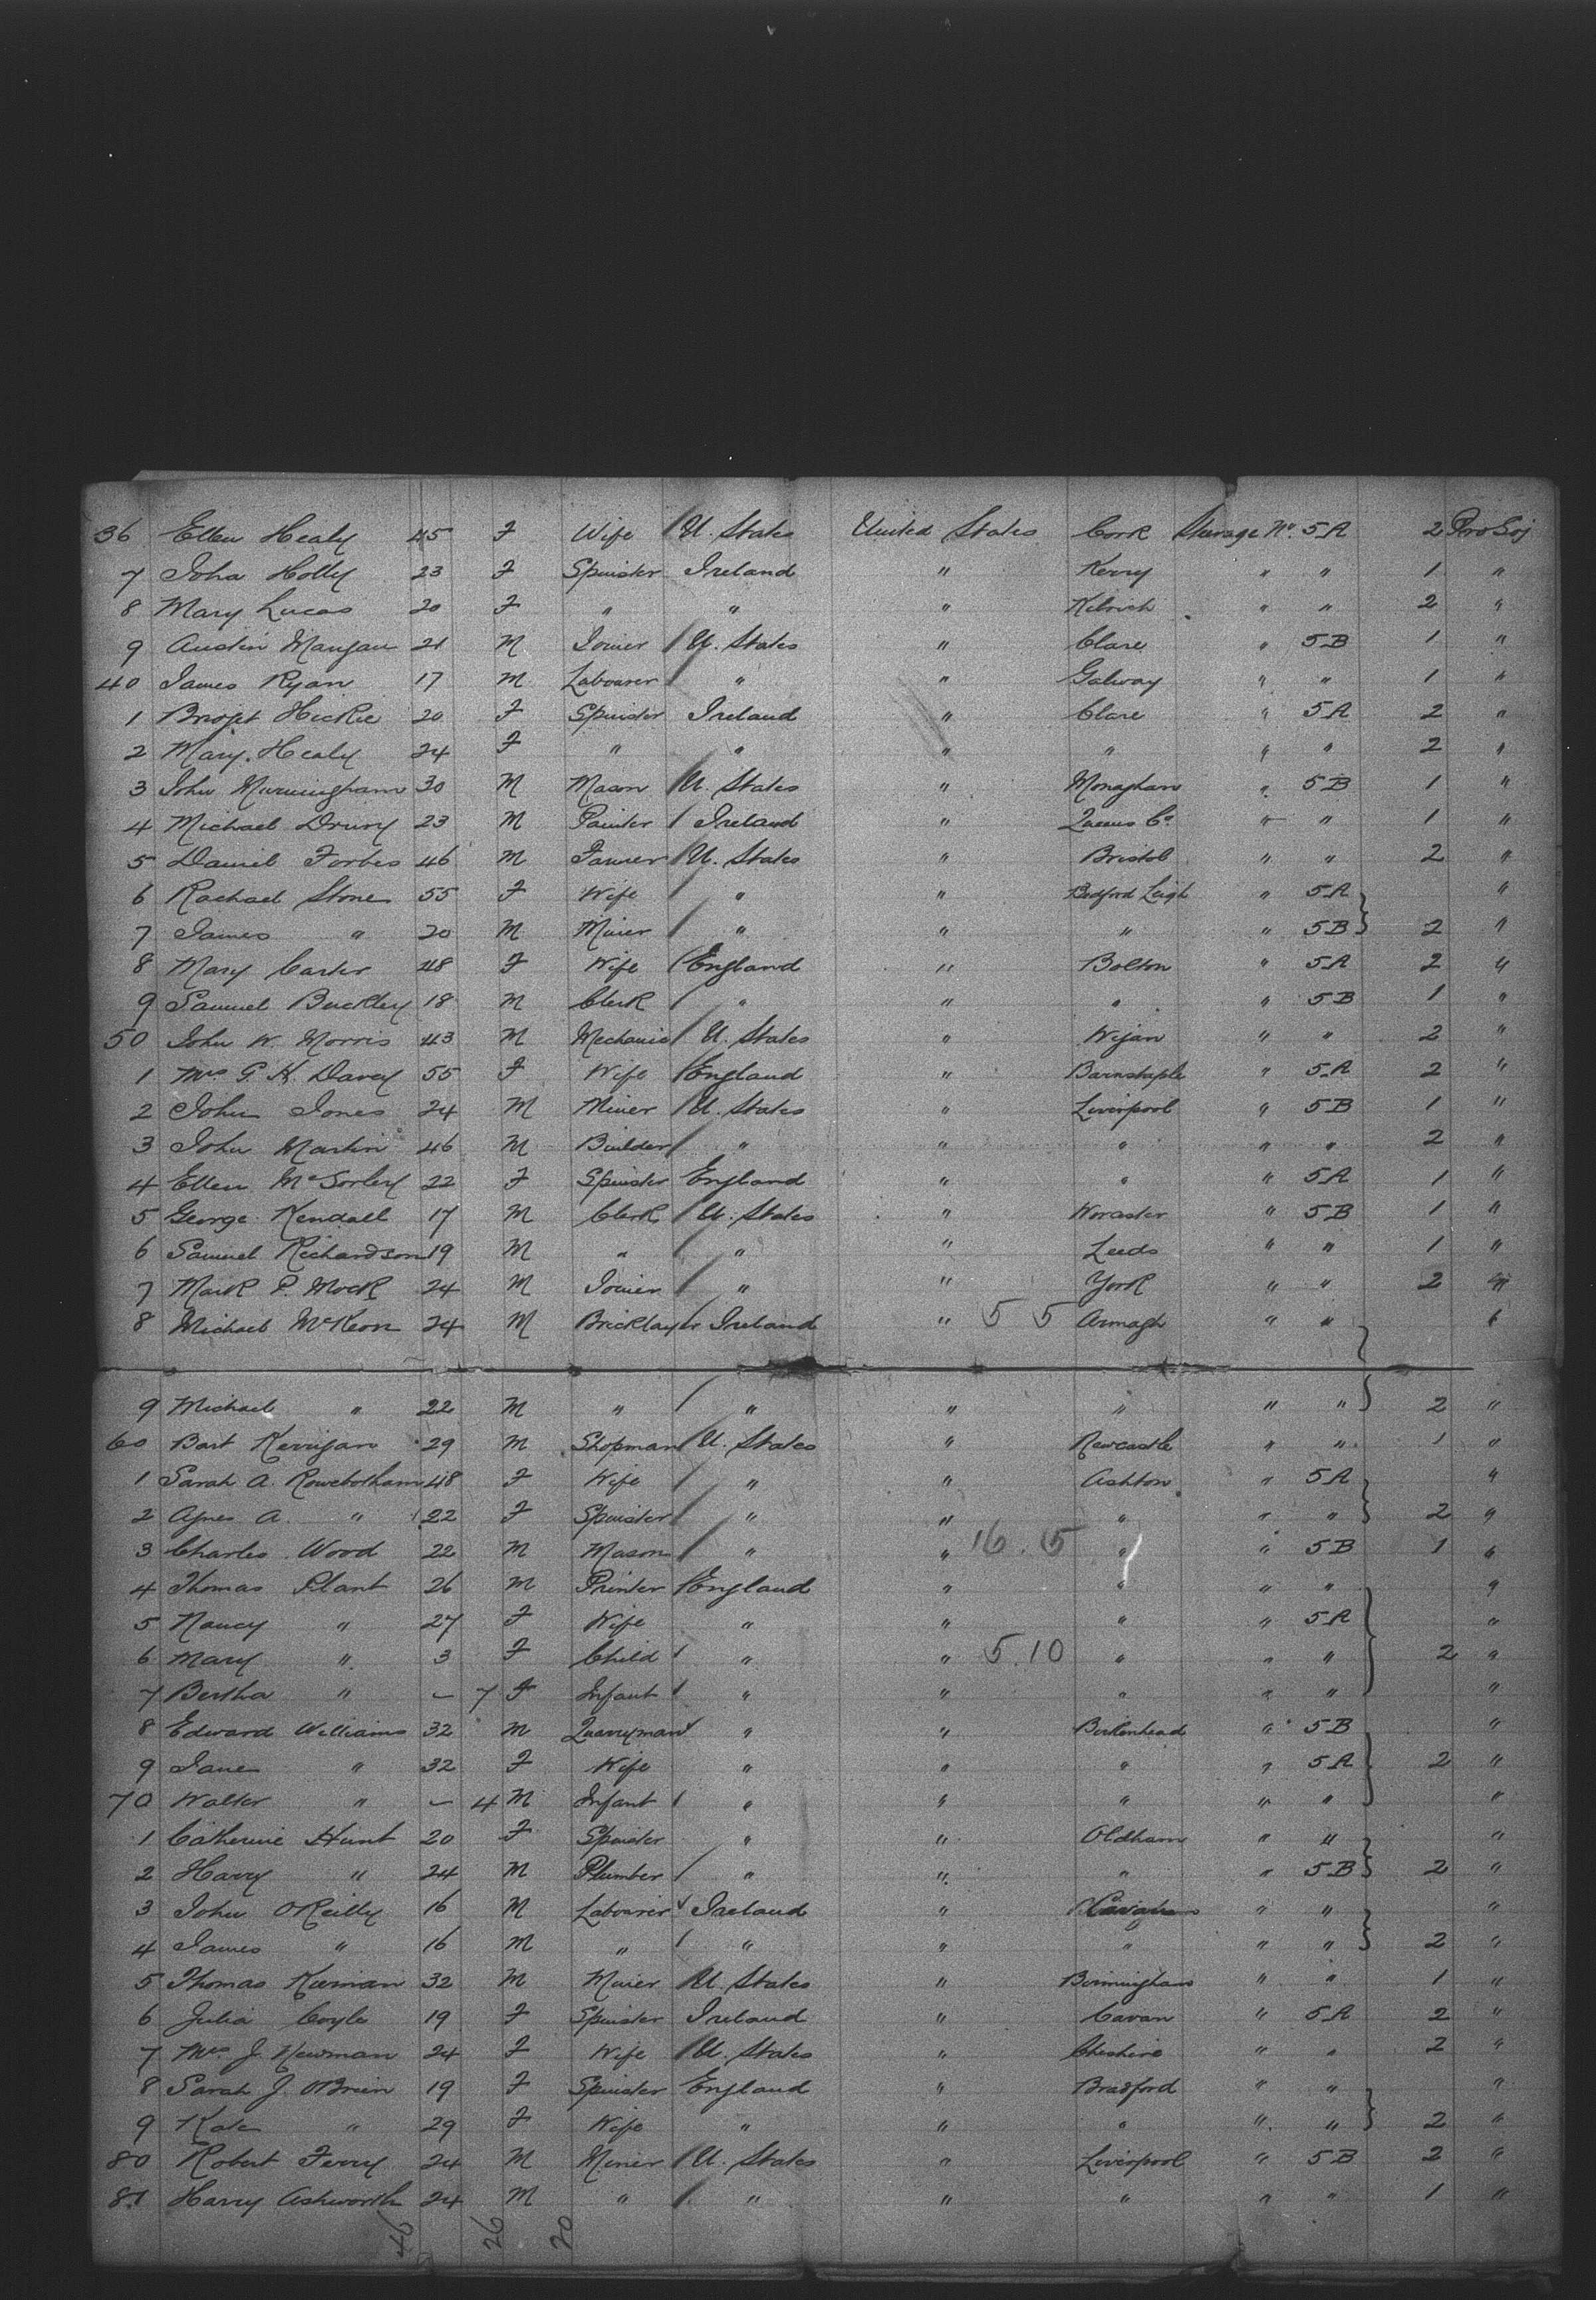 36 Ellen Healy 45 F Wife U. States United States Cork Steerage No. 5A 2 Pro Soj
7 Joha Holly 23 F Spinster Ireland " Kerry " " 1 "
8 Mary Lucas 20 F " " " " " 2 "
9 Austin Mangan 21 M Joiner U. States " Clare " 5B 1 "
40 James Ryan 17 M Labourer " " Galway " " 1 "
1 Hickie 20 F Spinster Ireland " Clare " 5A 2 "
2 Mary Healy 24 F " " " " " " 2 "
3 John Murningham 30 M Mason U. States " Monaghan " 5B 1 "
4 Michael Drury 23 M Painter Ireland " Queens Co. " " 1 "
5 Daniel Forbes 46 M Farmer U. States " Bristol " " 2 "
6 Rachael Stone 55 F Wife " " Bedford Leigh " 5A "
7 James " 20 M Miner " " " " 5B 2 "
8 Mary Carter 48 F Wife England " Bolton " 5A 2 "
9 Samuel Buckley 18 M Clerk " " " " 5B 1 "
50 John W. Morris 43 M Mechanic U. States " Wigan " " 2 "
1 Mrs G. K. Davey 55 F Wife England " Barnstaple " 5A 2 "
2 John Jones 24 M Miner U. States " Liverpool " 5B 1 "
3 John Martin 46 M Builder " " " " " 2 "
4 Ellen McSorley 22 F Spinster England " " " 5A 1 "
5 George Kendall 17 M Clerk U. States " Worcester " 5B 1 "
6 Samuel Richardson 19 M " " " Leeds " " 1 "
7 Mark P. Mock 24 M Joiner " " York " " 2 "
8 Michael McKeon 24 M Bricklayer Ireland " 5 5 Armagh " " "
9 Michael " 22 M " " " " " " 2 "
60 Bart Kerrigan 29 M Shopman U. States " Newcastle " " 1 "
1 Sarah A. Rowbotham 48 F Wife " " Ashton " 5A "
2 Agnes A. " 22 F Spinster " " " " " 2 "
3 Charles Wood 22 M Mason " " 16. 5 " " 5B 1 "
4 Thomas Plant 26 M Printer England " " " " "
5 Nancy " 27 F Wife " " " " 5A "
6 Mary " 3 F Child " " 5.10 " " " 2 "
7 Bertha " – 7 F Infant " " " " " "
8 Edward Williams 32 M Quarryman " " Birkenhead " 5B "
9 Jane " 32 F Wife " " " " 5A 2 "
70 Walter " – 4 M Infant " " " " " "
1 Catherine Hunt 20 F Spinster " " Oldham " " "
2 Harry " 24 M Plumber " " " " 5B 2 "
3 John OReilly 16 M Labourer Ireland " " " "
4 James " 16 M " " " " " " 2 "
5 Thomas Kiernan 32 M Miner U. States " Birmingham " " 1 "
6 Julia Coyle 19 F Spinster Ireland " Cavan " 5A 2 "
7 Mrs J. Newman 24 F Wife U. States " Cheshire " " 2 "
8 Sarah J. OBrien 19 F Spinster England " Bradford " " "
9 Kate " 29 F Wife " " " " " 2 "
80 Robert Ferry 24 M Miner U. States " Liverpool " 5B 2 "
81 Harry Ashworth 24 M " " " " " " 1 "
46 26 20